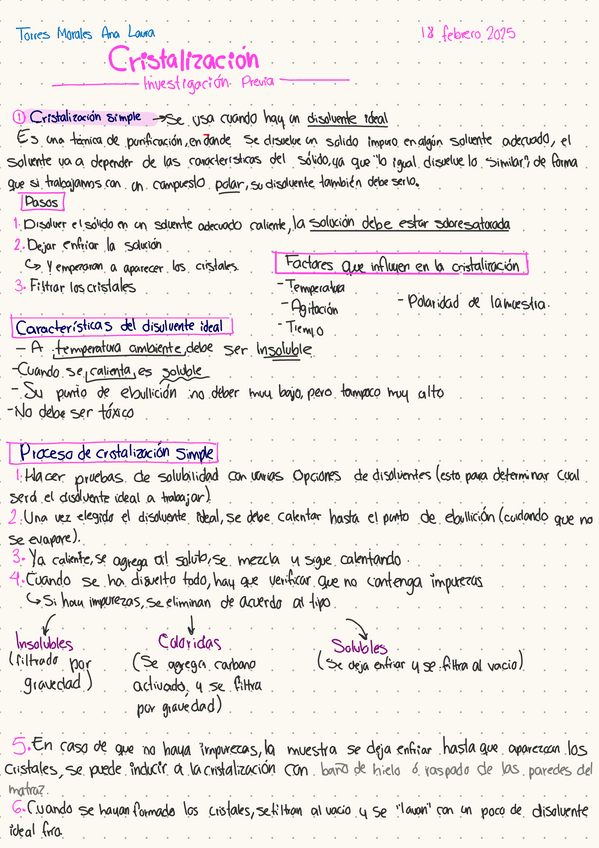 Torres Morales Ana Laura
18 febrero 2025
Cristalización
Investigación Previa
① Cristalización simple → Se usa cuando hay un disolvente ideal
Es una técnica de purificación, en donde se disuelve un solido impuro en algún solvente adecuado, el
solvente va a depender de las características del sólido, ya que "lo igual disuelve lo similar", de forma
que si trabajamos con un compuesto polar, su disolvente también debe serlo.
Pasos
1. Disolver el sólido en un solvente adecuado caliente, la solución debe estar sobresaturada
2. Dejar enfriar la solución
↳ Y empezaran a aparecer los cristales
3. Filtrar los cristales
Factores que influyen en la cristalización
- Temperatura
- Agitación
- Tiempo
- Polaridad de la muestra.
Características del disolvente ideal
- A temperatura ambiente, debe ser insoluble
- Cuando se calienta, es soluble
- Su punto de ebullición no deber muy bajo, pero tampoco muy alto
- No debe ser tóxico
Proceso de cristalización simple
1. Hacer pruebas de solubilidad con varias opciones de disolventes (esto para determinar cual
será el disolvente ideal a trabajar)
2. Una vez elegido el disolvente ideal, se debe calentar hasta el punto de ebullición (cuidando que no
se evapore).
3. Ya caliente, se agrega al soluto, se mezcla y sigue calentando.
4. Cuando se ha disuelto todo, hay que verificar que no contenga impurezas
↳ Si hay impurezas, se eliminan de acuerdo al tipo.
Insolubles
(filtrado por
gravedad)
Coloridas
(Se agrega carbono
activado, y se filtra
por gravedad)
Solubles
(Se deja enfriar y se filtra al vacio)
5. En caso de que no haya impurezas, la muestra se deja enfriar hasta que aparezcan los
cristales, se puede inducir a la cristalización con baño de hielo ó raspado de las paredes del
matraz.
6. Cuando se hayan formado los cristales, se filtran al vacio y se "lavan" con un poco de disolvente
ideal frio.